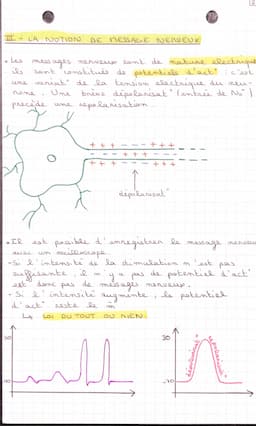 II - LA NOTION DE MESSAGE NERVEUX
• Les messages nerveux sont de nature électrique
ils sont constitués de potentiels d'act° : c'est
une variat° de la tension électrique du neu-
rone. Une brève dépolarisat° (entrée de Na+)
précède une repolarisation.
+ + + - - - + + +
- - - + + + - - -
+ + + - - - + + +
dépolarisat°
• Il est possible d'enregistrer le message nerveux
avec un oscilloscope.
- Si l'intensité de la stimulation n'est pas
suffisante, il n'y a pas de potentiel d'act°
est donc pas de messages nerveux.
- Si l'intensité augmente, le potentiel
d'act° reste le m̂
↳ LOI DU TOUT OU RIEN.
30
30
-70
dépolarisat°
repolarisat°